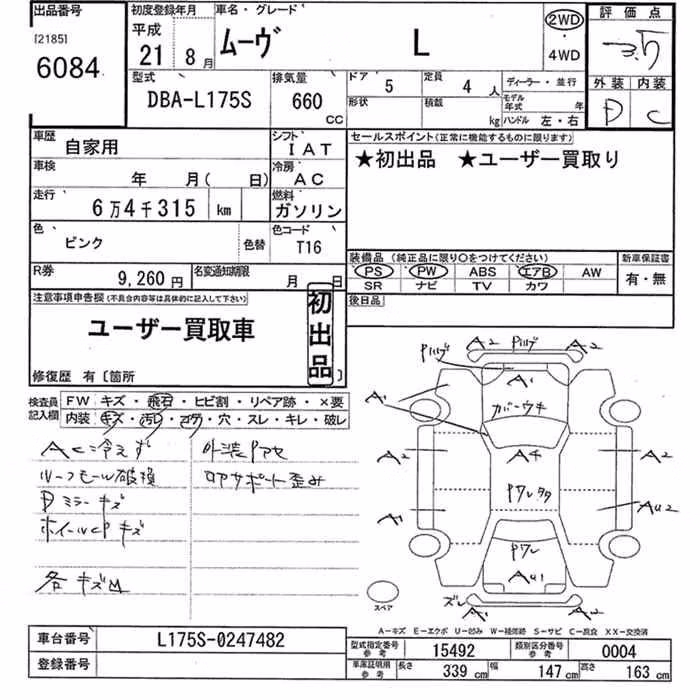 出品番号
[2185]
6084
初度登録年月
平成
21 8月
車名・グレード
ムーヴ L
2WD
・
4WD
評価点
3.5
外装 内装
D C
型式
DBA-L175S
排気量
660 CC
ドア 5
定員 4 人
形状
積載 kg
ディーラー・並行
モデル年式 年
ハンドル 左・右
車歴
自家用
シフト
IAT
車検
年 月( 日)
冷房
AC
走行
6万4千315 km
燃料
ガソリン
色
ピンク
色替
色コード
T16
R券
9,260円
名変通知期限
月 日
セールスポイント(正常に機能するものに限ります)
★初出品 ★ユーザー買取り
装備品(純正品に限り○をつけてください)
PS PW ABS エアB AW
SR ナビ TV カワ
新車保証書
有・無
後日品
注意事項申告欄(不具合内容等は具体的に記入して下さい)
ユーザー買取車
初出品
修復歴 有〔箇所 〕
検査員記入欄
FW キズ・飛石・ヒビ割・リペア跡・×要
内装 キズ・汚れ・コゲ・穴・スレ・キレ・破レ
AC冷えず
ルーフモール破損
Dミラーキズ
ホイールCPキズ
各キズM
外装Pアセ
歪み
A2 Pハゲ A2
Pハゲ
A1
A1
ガバーウキ
A2 A4 A2
A1 PワレタタAU2
Pワレ
AU1
ズレ
A1 A2
スペア
A-キズ E-エクボ U-凹み W-補修跡 S-サビ C-腐食 XX-交換済
車台番号
L175S-0247482
登録番号
型式指定番号 参考 15492
類別区分番号 参考 0004
車庫証明用 参考 長さ 339 cm 幅 147 cm 高さ 163 cm